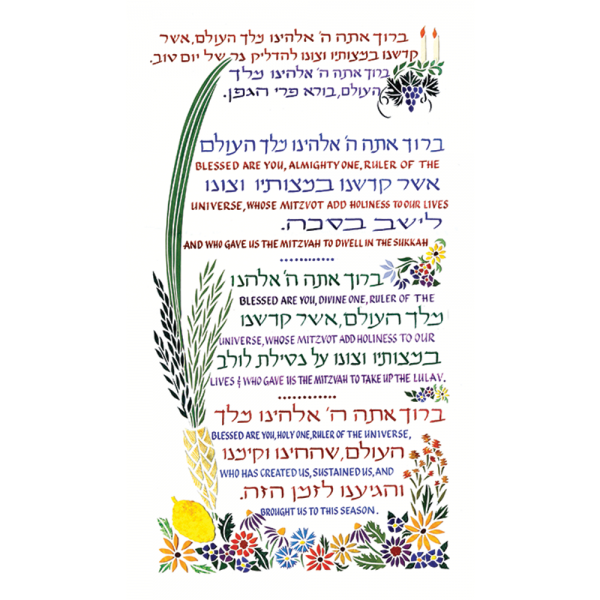 ברוך אתה ה' אלהינו מלך העולם, אשר
קדשנו במצותיו וצונו להדליק נר של יום טוב.
ברוך אתה ה' אלהינו מלך
העולם, בורא פרי הגפן.
ברוך אתה ה' אלהינו מלך העולם
BLESSED ARE YOU, ALMIGHTY ONE, RULER OF THE
אשר קדשנו במצותיו וצונו
UNIVERSE, WHOSE MITZVOT ADD HOLINESS TO OUR LIVES
לישב בסכה.
AND WHO GAVE US THE MITZVAH TO DWELL IN THE SUKKAH
ברוך אתה ה' אלהנו
BLESSED ARE YOU, DIVINE ONE, RULER OF THE
מלך העולם, אשר קדשנו
UNIVERSE, WHOSE MITZVOT ADD HOLINESS TO OUR
במצותיו וצונו על נטילת לולב
LIVES & WHO GAVE US THE MITZVAH TO TAKE UP THE LULAV.
ברוך אתה ה' אלהינו מלך
BLESSED ARE YOU, HOLY ONE, RULER OF THE UNIVERSE,
העולם, שהחינו וקימנו
WHO HAS CREATED US, SUSTAINED US, AND
והגיענו לזמן הזה.
BROUGHT US TO THIS SEASON.